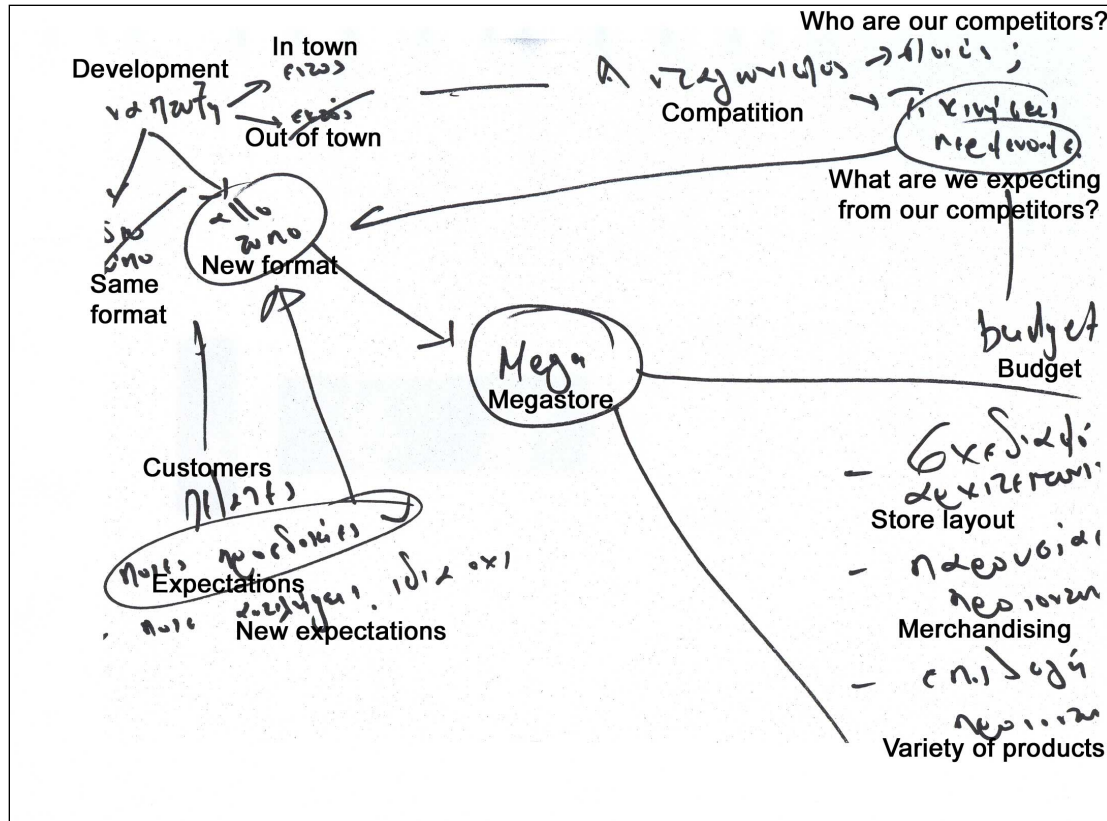 Who are our competitors?
In town
εντός
Development
ανάπτυξη
Out of town
εκτός
Ανταγωνισμός → ποιός;
Compatition
Τι κινήσεις
περιμένουμε
What are we expecting
from our competitors?
άλλο
τύπο
New format
Same
format
budget
Budget
Mega
Megastore
Customers
πελάτες
προσδοκίες
Expectations
ίδια όχι
New expectations
- σχεδιασμό
αρχιτεκτονι
Store layout
- παρουσία
προϊοντων
Merchandising
- επιλογή
προϊοντων
Variety of products